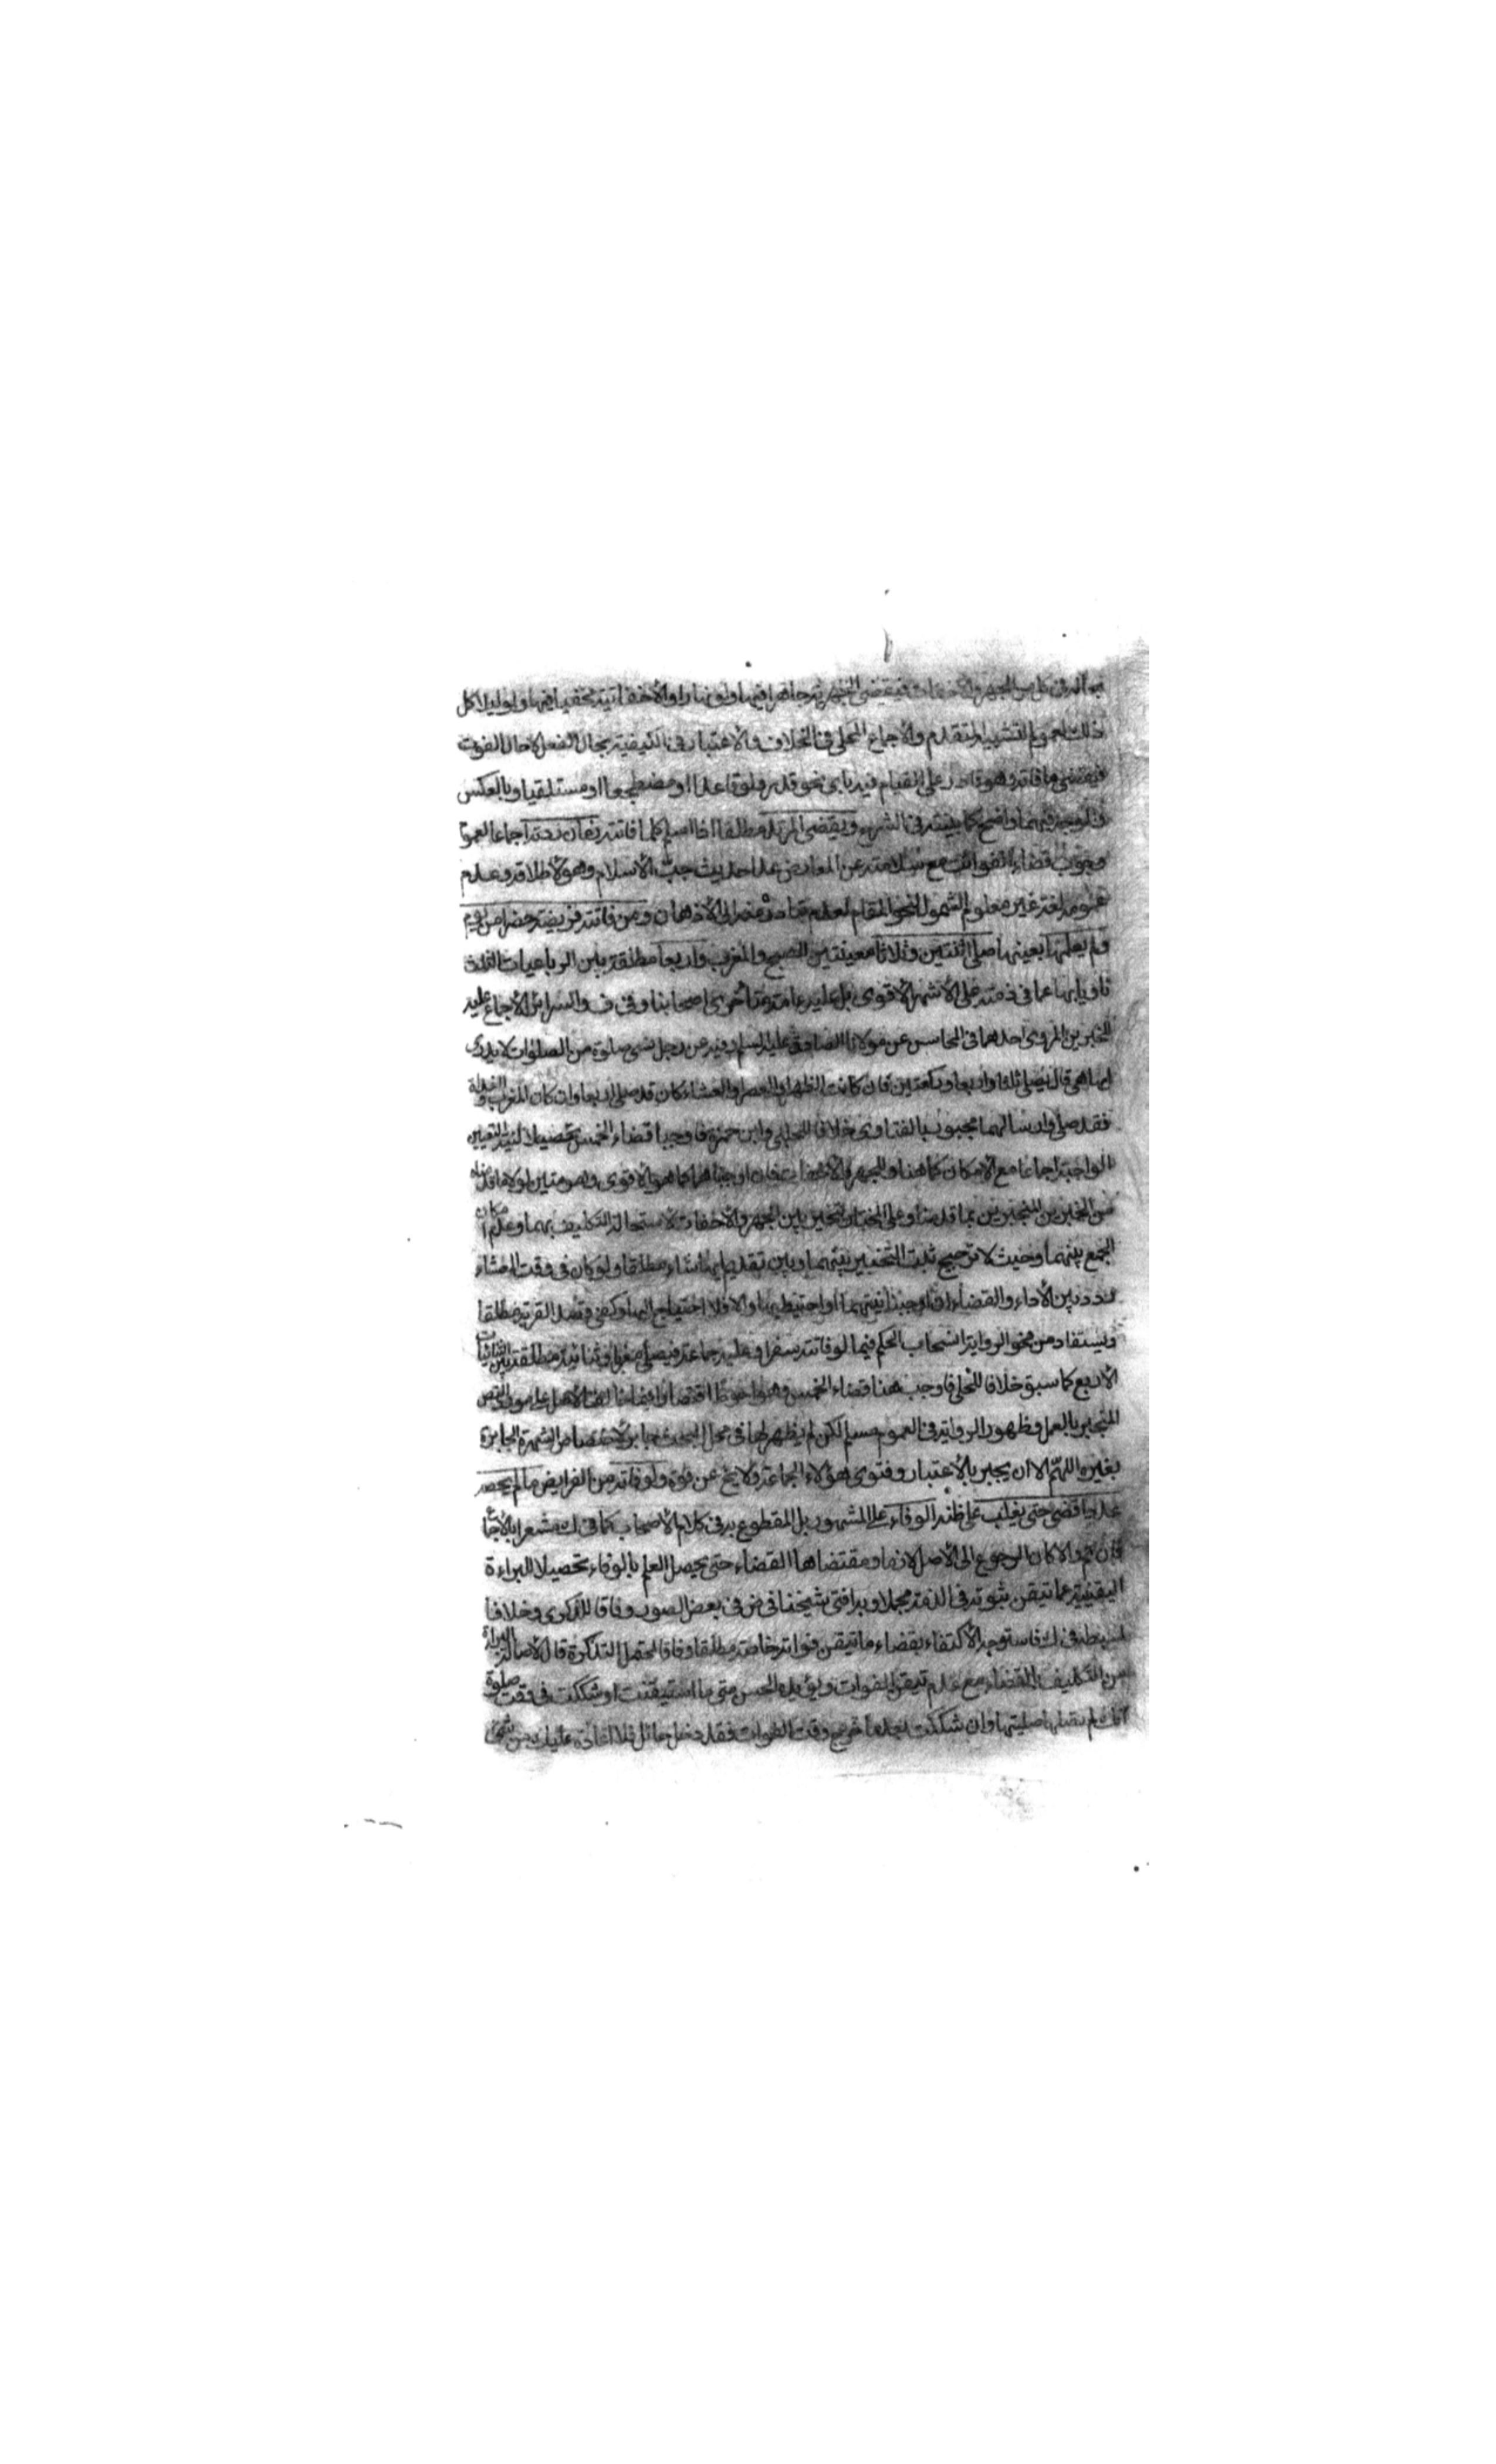 فيقضي الجهرية جاهرا فيها ولو نهارا والاخفاتية مخفيا فيها ولو ليلا كل
ذلك لعموم التشبيه المتقدم والاجماع المحكي في الخلاف والاعتبار في الكيفية بحال الفعل لا حال الفوت
فيقضي ما فاته وهو قادر على القيام فيه باي نحو قدر ولو قاعدا او مضطجعا او مستلقيا وبالعكس
والوجه فيهما واضح كما بينته في الشرح ويقضي المرتد مطلقا اذا اسلم كلما فاتته زمان ردته اجماعا لعموم
وجوب قضاء الفوائت مع سلامته عن المعارض عدا حديث جب الاسلام وهو لاطلاقه وعدم
عمومه لغة غير معلوم الشمول لنحو المقام لعدم تبادره منه الى الاذهان ومن فاتته فريضة حضرا من يوم
ولم يعلمها بعينها صلى اثنتين وثلاثا معينتين الصبح والمغرب واربعا مطلقة بين الرباعيات الثلث
ناويا بها عما في ذمته على الاشهر الاقوى بل عليه عامة متاخري اصحابنا وفي ف والسرائر الاجماع عليه
للخبرين المروي احدهما في المحاسن عن مولانا الصادق عليه السلم وفيه عن رجل نسي صلوة من الصلوات لا يدري
ايها هي قال يصلي ثلثا واربعا وركعتين فان كانت الظهر والعصر والعشاء كان قد صلى اربعا وان كان المغرب والغداة
فقد صلى وارسالهما مجبور بالفتاوى خلافا للحلبي وابن حمزة فاوجبا قضاء الخمس تحصيلا لنية التعيين
الواجبة اجماعا مع الامكان كما هنا وللجهر والاخفات فان اوجبناهما كما هو الاقوى
من الخبرين المنجبرين بما قدمنا وعلى المختار يتخير بين الجهر والاخفات لاستحالة التكليف بهما وعدم امكان
الجمع بينهما وحيث لا ترجيح ثبت التخيير بينهما وبين تقديم ايها شاء مطلقا ولو كان في وقت العشاء
ردد بين الاداء والقضاء ان اوجبنا نيتهما او احتيط بها والا فلا احتياج اليها وكفى قصد القربة مطلقا
ويستفاد من فحوى الرواية انسحاب الحكم فيما لو فاتته سفرا وعليه جماعة فيصلي مغربا وثنائية مطلقة بين الثنائيات
الاربع كما سبق خلافا للحلي فاوجب هنا قضاء الخمس وهو احوط اقتصارا فيما خالف الاصل على مورد النص
المنجبر بالعمل وظهور الرواية في العموم مسلم لكن لم يظهر لها في محل البحث جابر لاختصاص الشهرة الجابرة
بغيره اللهم الا ان يجبر بالاعتبار وفتوى هؤلاء الجماعة ولا يخ عن قوة ولو فاته من الفرايض ما لم يحصه
عددا قضى حتى يغلب على ظنه الوفاء على المشهور بل المقطوع به في كلام الاصحاب كما في ك مشعرا بالاجماع
فان تم والا كان الرجوع الى الاصل لازما ومقتضاها القضاء حتى يحصل العلم بالوفاء تحصيلا للبراءة
اليقينية عما تيقن ثبوته في الذمة مجملا وبه افتى شيخنا في ض في بعض الصور وفاقا للذكرى وخلافا
لسبطه في ك فاستوجه الاكتفاء بقضاء ما تيقن فواته خاصة مطلقا وفاقا لمحتمل التذكرة قال لاصالة البراءة
من التكليف بالقضاء مع عدم تيقن الفوات ويؤيده الحسن متى ما استيقنت او شككت في وقت صلوة
انك لم تصلها صليتها وان شككت بعد ما خرج وقت الفوات فقد دخل حائل فلا اعادة عليك من شك